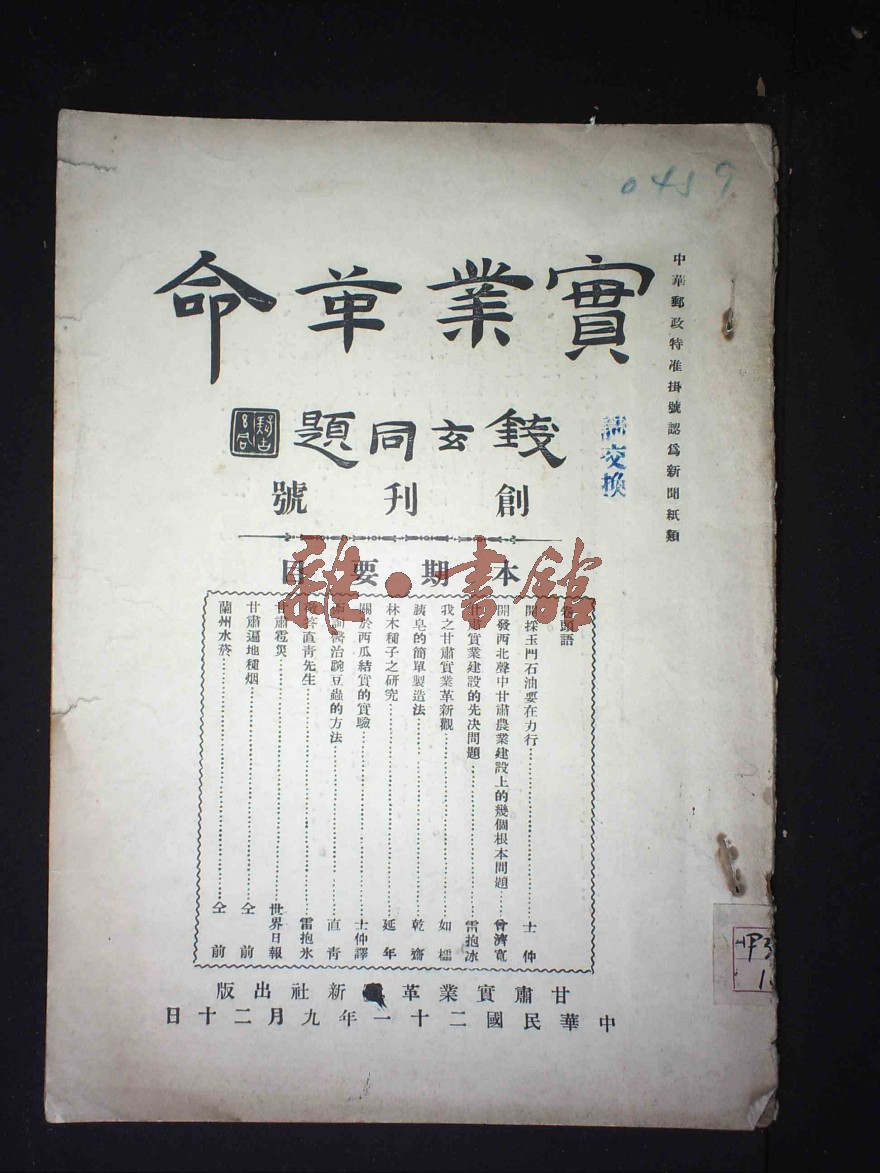 0459
中華郵政特准掛號認爲新聞紙類
實業革命
錢玄同題
請交換
創刊號
本期要目
雜·書館
卷頭語
開採玉門石油要在力行……士仲
開發西北聲中甘肅農業建設上的幾個根本問題……曾濟寬
甘肅實業建設的先決問題……雷抱冰
我之甘肅實業革新觀……如檽
胰皂的簡單製造法……乾齋
林木種子之研究……延年
關於西瓜結實的實驗……士仲譯
醫治豌豆蟲的方法……直青
答直青先生……雷抱氷
甘肅雹災……世界日報
甘肅遍地種烟……仝前
蘭州水菸……仝前
甘肅實業革新社出版
中華民國二十一年九月二十日